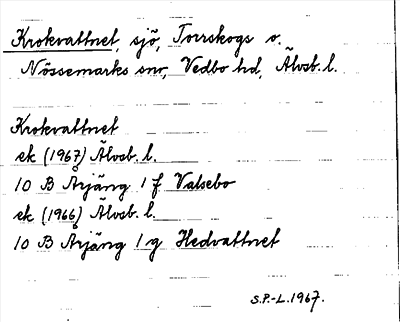 Krokvattnet, sjö, Torrskogs o.
Nössemarks snr, Vedbo hd, Älvsb. l.
Krokvattnet
ek (1967) Älvsb. l.
10 B Årjäng 1 f Valsebo
ek (1966) Älvsb. l.
10 B Årjäng 1 g Hedvattnet
S.P.-L. 1967.